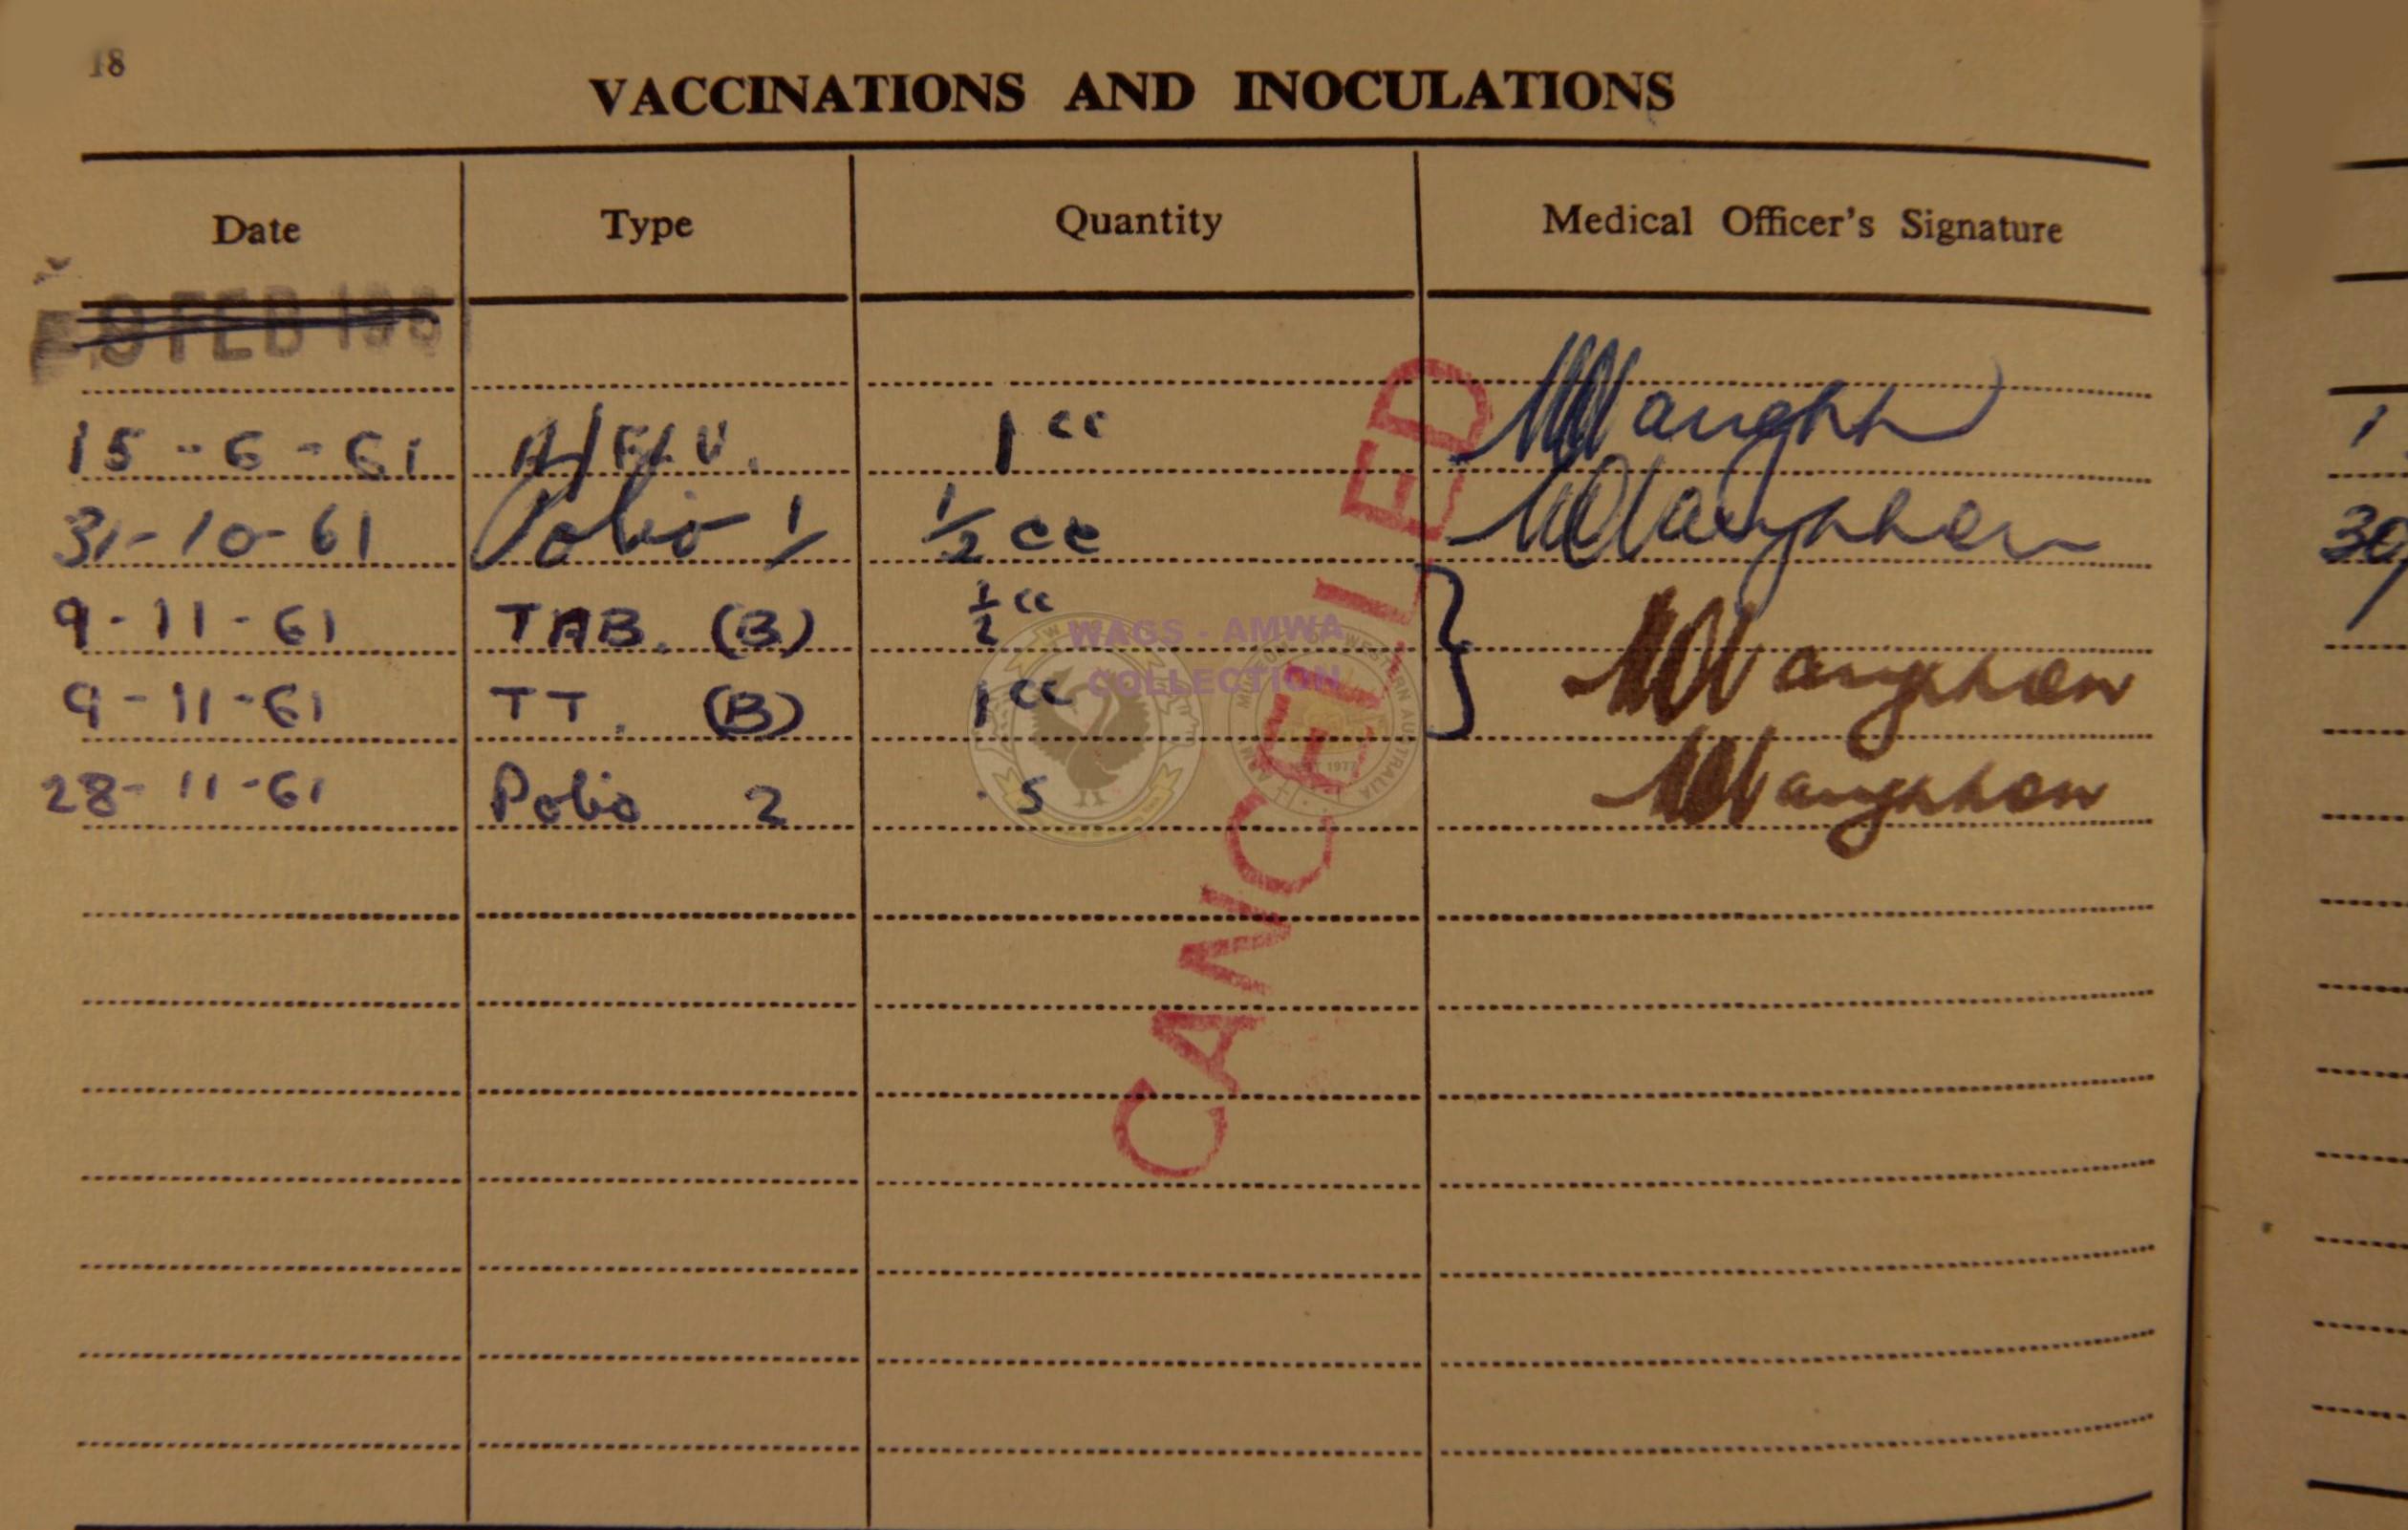 18
VACCINATIONS AND INOCULATIONS
Date Type Quantity Medical Officer's Signature
9 FEB 196
15-6-61 A/FLU. 1 cc
31-10-61 Polio 1/ 1/2 cc
9-11-61 TAB. (B) 1/2 cc
9-11-61 TT. (B) 1 cc
28-11-61 Polio 2 .5
CANCELLED
WAGS - AMWA
COLLECTION